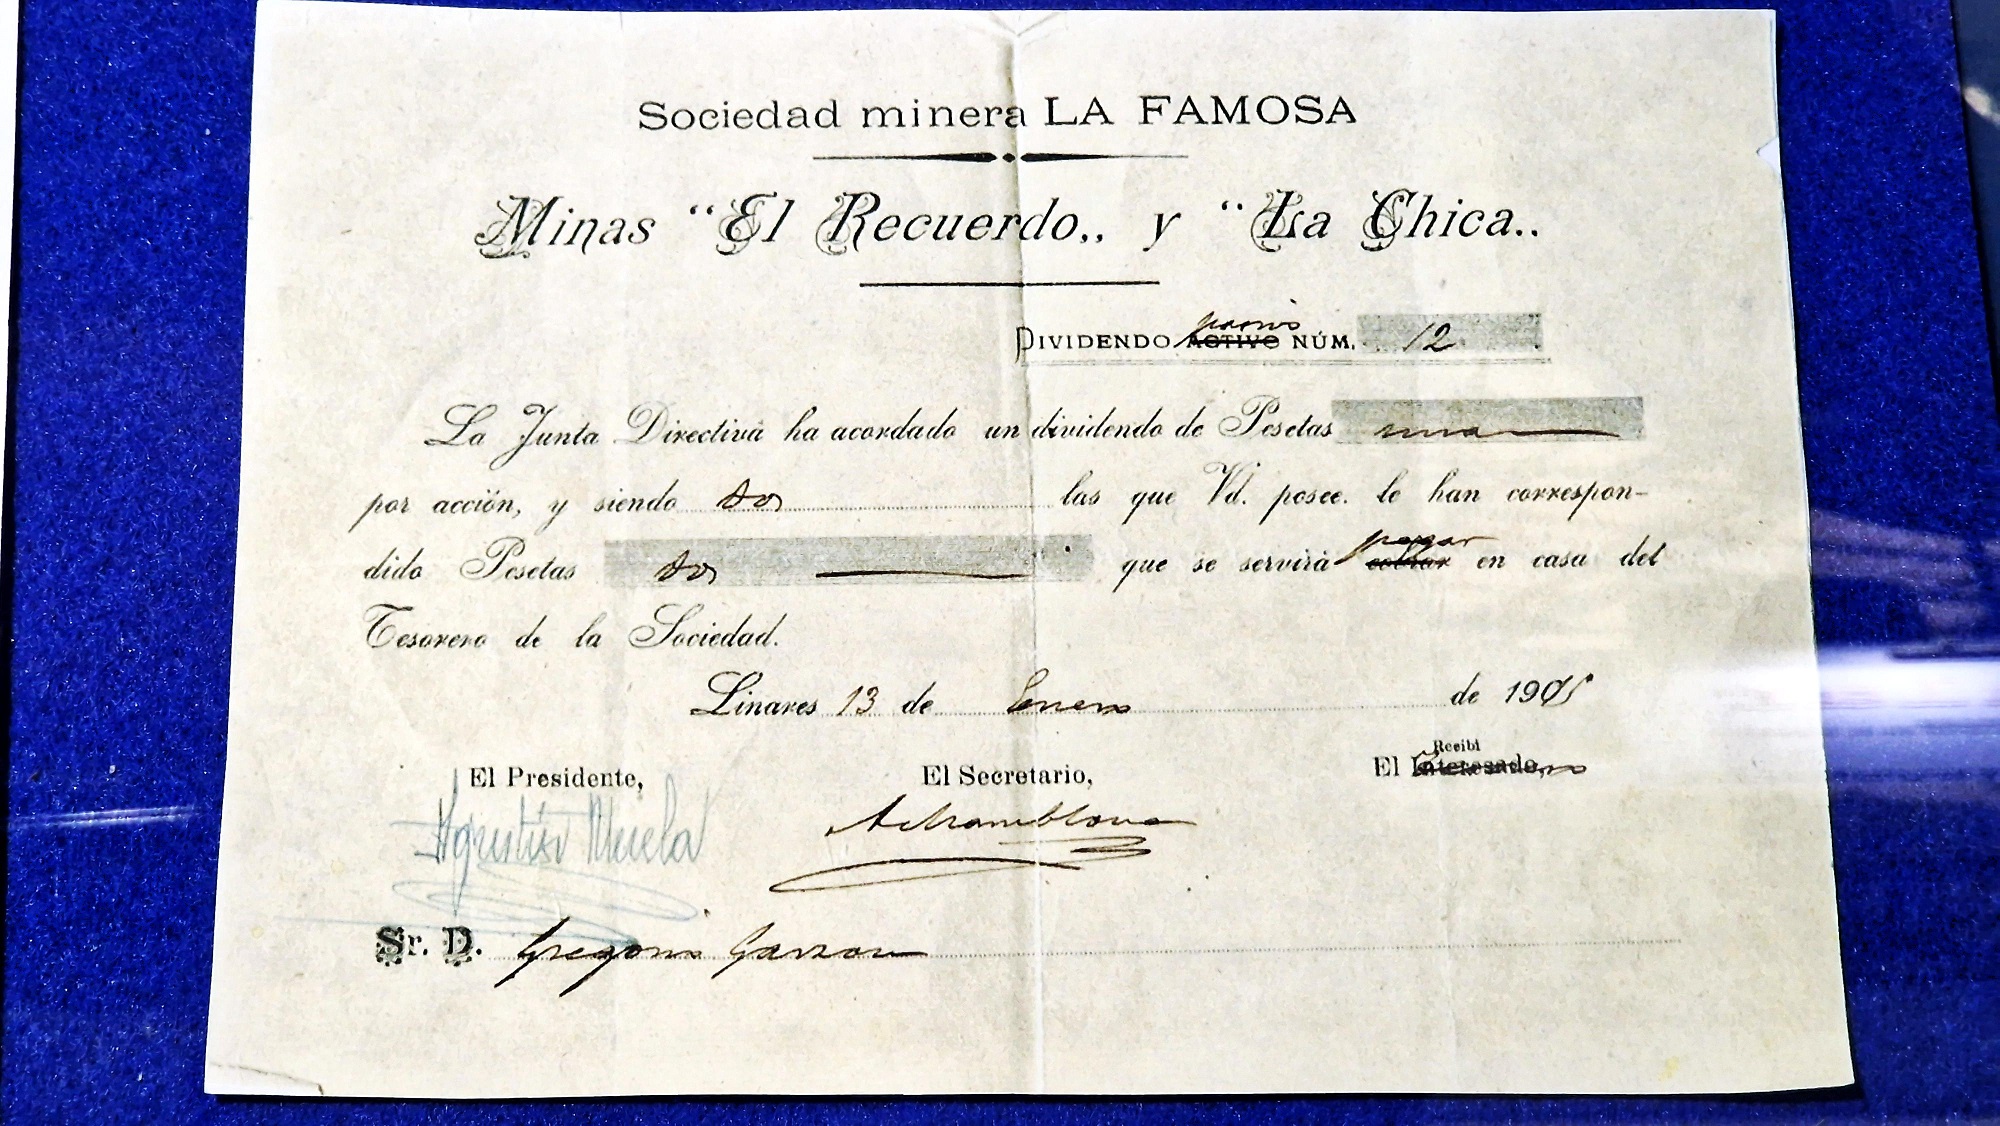 Sociedad minera LA FAMOSA
Minas “El Recuerdo„ y “La Chica„
pasivo
DIVIDENDO ACTIVO NÚM. 12
La Junta Directiva ha acordado un dividendo de Pesetas una
por acción, y siendo dos las que Vd. posee. le han correspon-
dido Pesetas dos que se servirá pagar cobrar en casa del
Tesorero de la Sociedad.
Linares 13 de Enero de 190
El Presidente, El Secretario, Recibí
El Interesado,
Agustín
Sr. D. Gregorio Garzon